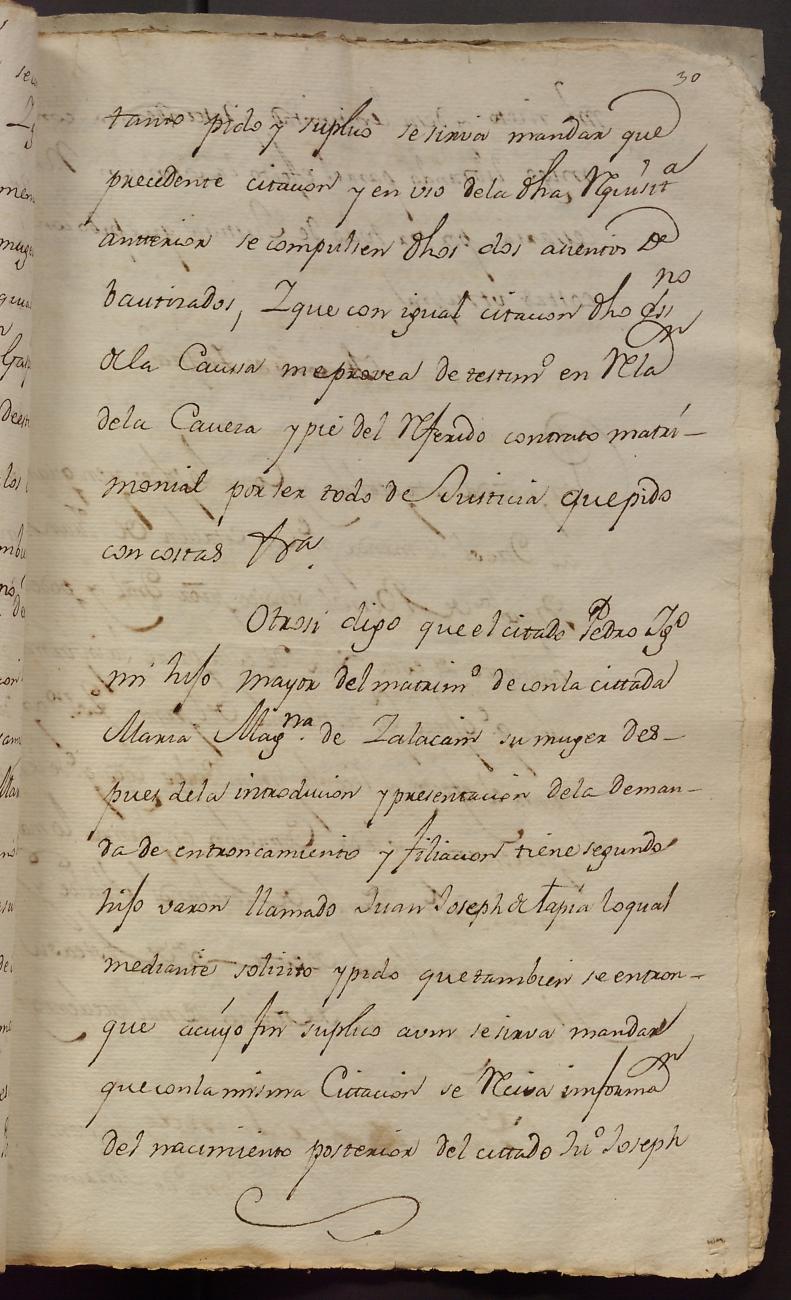 30
tanto pido y suplico se sirva mandar que
precedente citacion y en uso dela dha Rquisita
antterior se compulsen dhos dos asientos De
bautizados, Y que con igual citacion dho essno
de la Caussa me provea de testimo en Rla
dela Caveza y pie del Rferido contrato matri-
monial por ser todo de Justicia que pido
con costas
Otrosi digo que el citado Pedro Igo
mi hijo mayor del matrimo de con la cittada
Maria Magna. de Zalacain su muger des-
pues dela introducion y presentacion dela Deman-
da de entroncamiento y filiacion tiene segundo
hijo varon llamado Juan Joseph de tapia lo qual
mediante solicito y pido que tambien se entron-
que acúyo fin suplico a vm se sirva mandar
que con la misma Cittacion se Rciva informan
del nacimiento posterior del cittado Juo Joseph